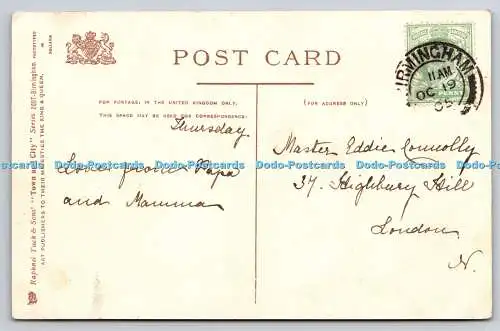 POST CARD
FOR POSTAGE IN THE UNITED KINGDOM ONLY,
THIS SPACE MAY BE USED FOR CORRESPONDENCE.
(FOR ADDRESS ONLY.)
Raphael Tuck & Sons' "Town and City" Series 2007-Birmingham
ART PUBLISHERS TO THEIR MAJESTIES THE KING & QUEEN.
BIRMINGHAM
11 AM
OC
05
PENNY
Thursday
Love from Papa
and Mamma
Master Eddie Connolly
37. Highbury Hill
London
N.
Dodo-Postcards Dodo-Postcards Dodo-Postcards Dodo-Postcards Dodo-Postcards Dodo-Postcards